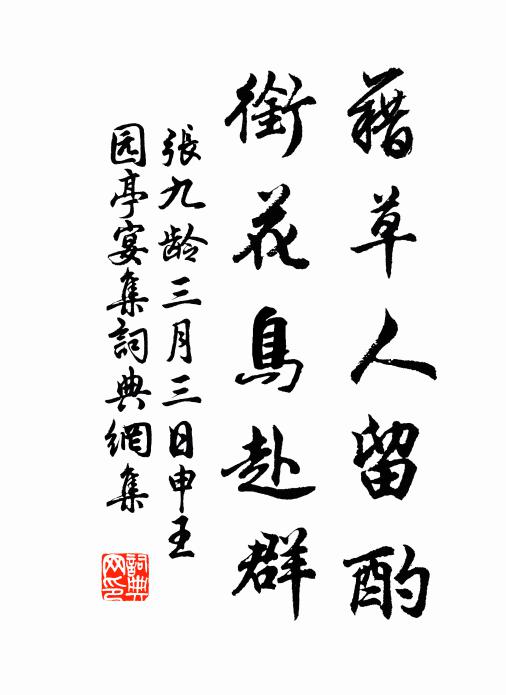 藉草人留酌
銜花鳥赴群
張九龄三月三日申王
园亭宴集詞典網集
詞典网印